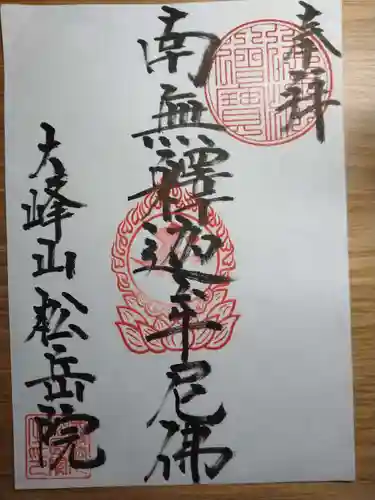 奉拝
南無釋迦牟尼佛
大峰山松岳院